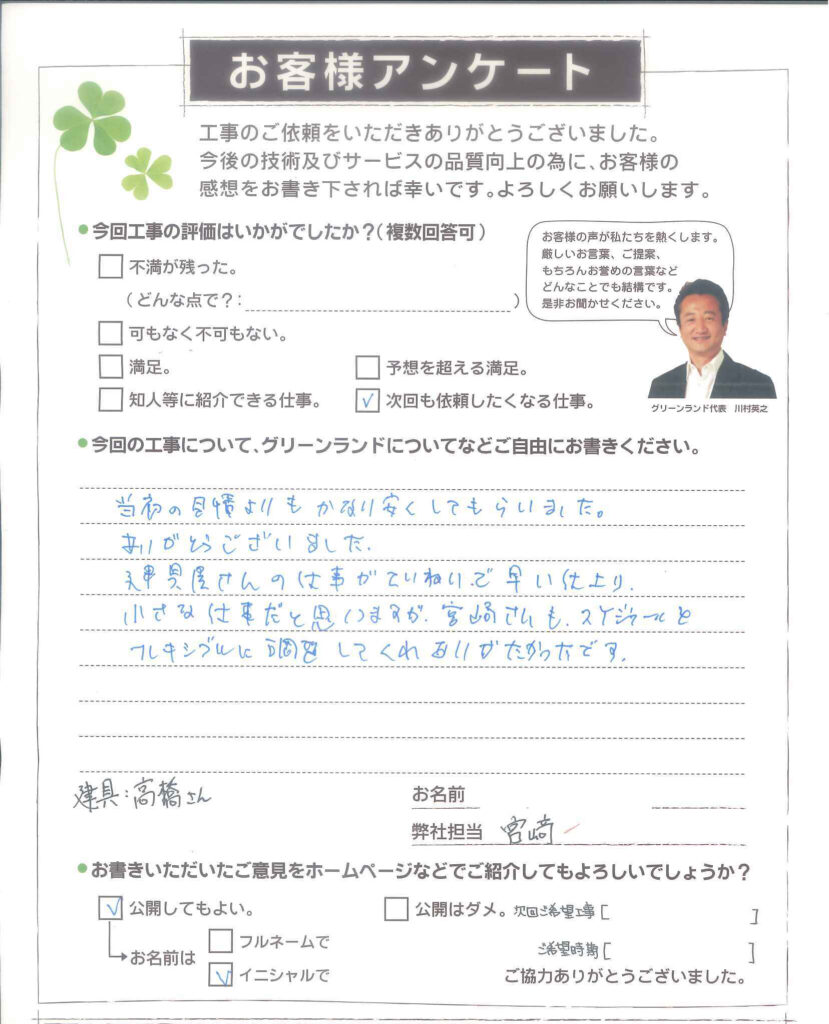 お客様アンケート
工事のご依頼をいただきありがとうございました。
今後の技術及びサービスの品質向上の為に、お客様の
感想をお書き下されば幸いです。よろしくお願いします。
●今回工事の評価はいかがでしたか?(複数回答可)
お客様の声が私たちを熱くします。
厳しいお言葉、ご提案、
もちろんお誉めの言葉など
どんなことでも結構です。
是非お聞かせください。
不満が残った。
(どんな点で?: )
可もなく不可もない。
満足。 予想を超える満足。
知人等に紹介できる仕事。 ✓ 次回も依頼したくなる仕事。
グリーンランド代表 川村英之
●今回の工事について、グリーンランドについてなどご自由にお書きください。
当初の見積よりもかなり安くしてもらいました。
ありがとうございました.
建具屋さんの仕事がていねいで早い仕上り.
小さな仕事だと思いますが.宮崎さんも.スケジュールを
フレキシブルに調整してくれありがたかったです.
建具:高橋さん
お名前
弊社担当 宮﨑
●お書きいただいたご意見をホームページなどでご紹介してもよろしいでしょうか?
✓ 公開してもよい。 公開はダメ。 次回ご希望工事[ ]
お名前は フルネームで
希望時期[ ]
✓ イニシャルで
ご協力ありがとうございました。